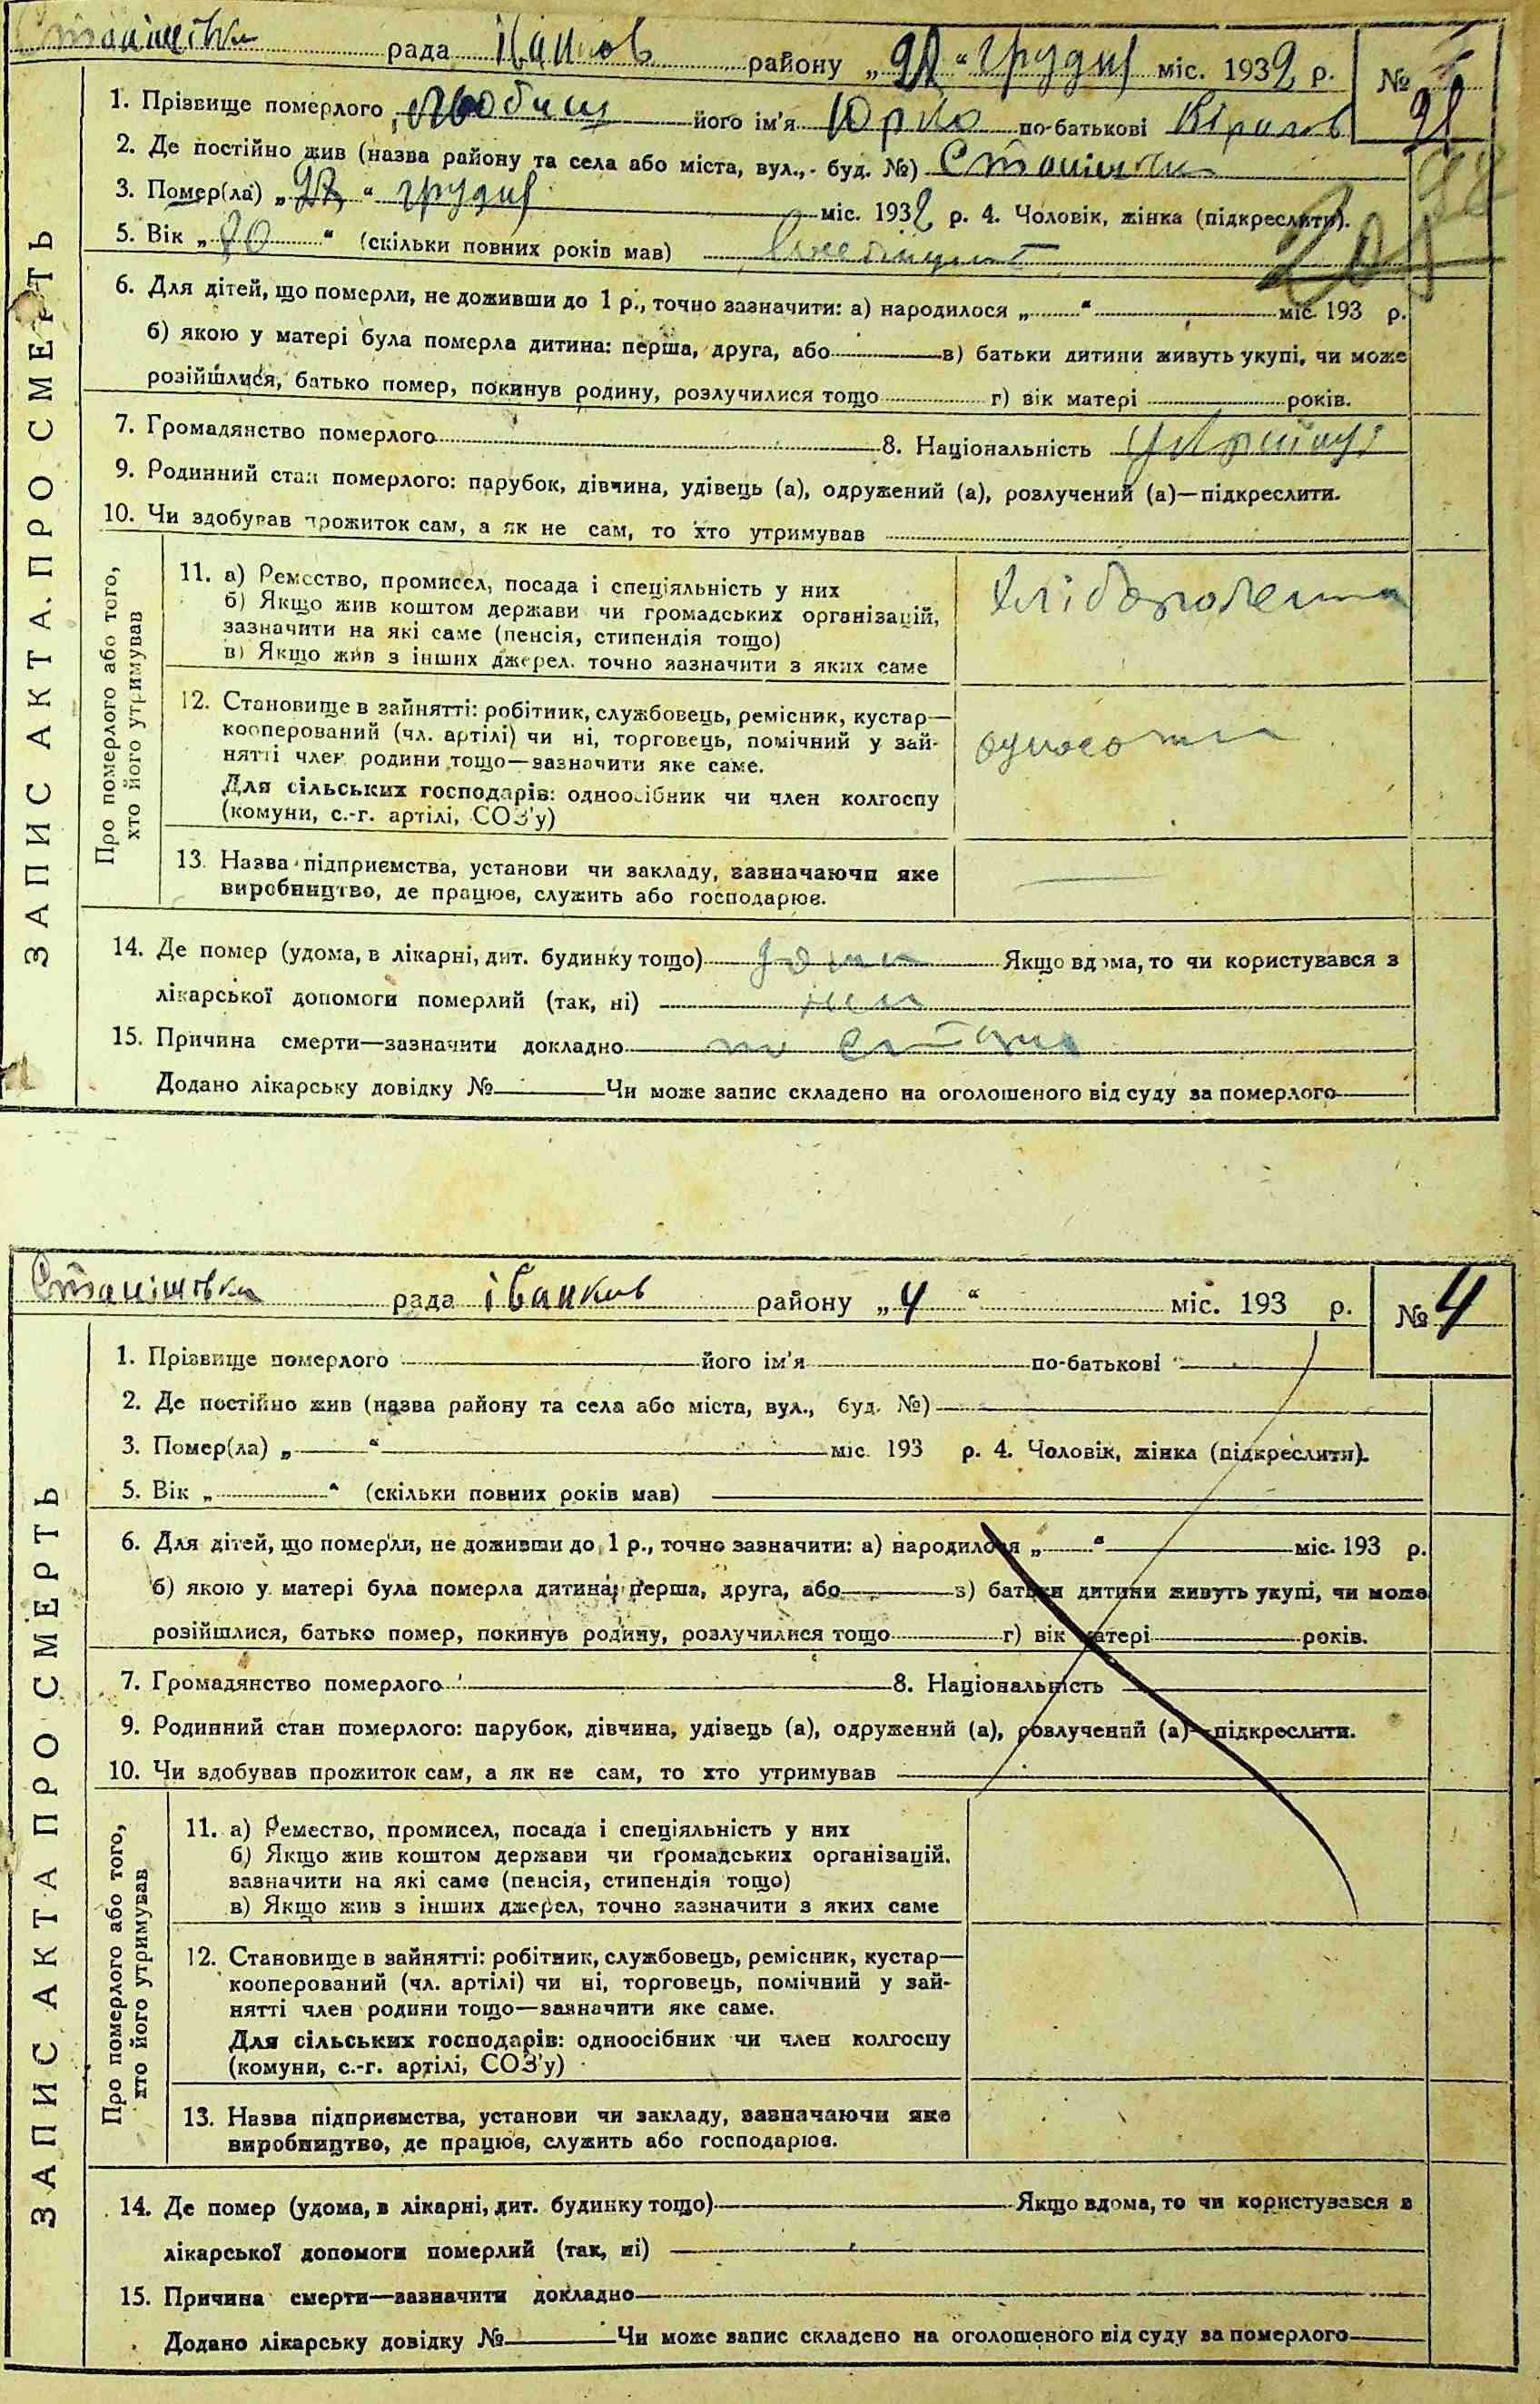 Станішівка рада Іванков району „ “ грудня міс. 1932 р. №
1. Прізвище померлого його ім'я Юрко по-батькові
2. Де постійно жив (назва району та села або міста, вул., буд. №)
3. Помер(ла) „ “ грудня міс. 1932 р. 4. Чоловік, жінка (підкреслити).
5. Вік „ “ (скільки повних років мав)
6. Для дітей, що померли, не доживши до 1 р., точно зазначити: а) народилося „ “ міс. 193 р.
б) якою у матері була померла дитина: перша, друга, або в) батьки дитини живуть укупі, чи може
розійшлися, батько помер, покинув родину, розлучилися тощо г) вік матері років.
7. Громадянство померлого 8. Національність
9. Родинний стан померлого: парубок, дівчина, удівець (а), одружений (а), розлучений (а)—підкреслити.
10. Чи здобував прожиток сам, а як не сам, то хто утримував
ЗАПИС АКТА ПРО СМЕРТЬ
Про померлого або того,
хто його утримував
11. а) Ремество, промисел, посада і спеціяльність у них
б) Якщо жив коштом держави чи громадських організацій,
зазначити на які саме (пенсія, стипендія тощо)
в) Якщо жив з інших джерел, точно зазначити з яких саме
12. Становище в зайнятті: робітник, службовець, ремісник, кустар—
кооперований (чл. артілі) чи ні, торговець, помічний у зай-
нятті член родини тощо—зазначити яке саме.
Для сільських господарів: одноосібник чи член колгоспу
(комуни, с.-г. артілі, СОЗ'у)
13. Назва підприємства, установи чи закладу, зазначаючи яке
виробництво, де працює, служить або господарює.
14. Де помер (удома, в лікарні, дит. будинку тощо) Якщо вдома, то чи користувався з
лікарської допомоги померлий (так, ні)
15. Причина смерти—зазначити докладно
Додано лікарську довідку № Чи може запис складено на оголошеного від суду за померлого
Станішовка рада Іванков району „4 “ міс. 193 р. № 4
1. Прізвище померлого його ім'я по-батькові
2. Де постійно жив (назва району та села або міста, вул., буд. №)
3. Помер(ла) „ “ міс. 193 р. 4. Чоловік, жінка (підкреслити).
5. Вік „ “ (скільки повних років мав)
6. Для дітей, що померли, не доживши до 1 р., точно зазначити: а) народилося „ “ міс. 193 р.
б) якою у матері була померла дитина: перша, друга, або в) батьки дитини живуть укупі, чи може
розійшлися, батько помер, покинув родину, розлучилися тощо г) вік матері років.
7. Громадянство померлого 8. Національність
9. Родинний стан померлого: парубок, дівчина, удівець (а), одружений (а), розлучений (а)—підкреслити.
10. Чи здобував прожиток сам, а як не сам, то хто утримував
ЗАПИС АКТА ПРО СМЕРТЬ
Про померлого або того,
хто його утримував
11. а) Ремество, промисел, посада і спеціяльність у них
б) Якщо жив коштом держави чи громадських організацій,
зазначити на які саме (пенсія, стипендія тощо)
в) Якщо жив з інших джерел, точно зазначити з яких саме
12. Становище в зайнятті: робітник, службовець, ремісник, кустар—
кооперований (чл. артілі) чи ні, торговець, помічний у зай-
нятті член родини тощо—зазначити яке саме.
Для сільських господарів: одноосібник чи член колгоспу
(комуни, с.-г. артілі, СОЗ'у)
13. Назва підприємства, установи чи закладу, зазначаючи яке
виробництво, де працює, служить або господарює.
14. Де помер (удома, в лікарні, дит. будинку тощо) Якщо вдома, то чи користувався з
лікарської допомоги померлий (так, ні)
15. Причина смерти—зазначити докладно
Додано лікарську довідку № Чи може запис складено на оголошеного від суду за померлого